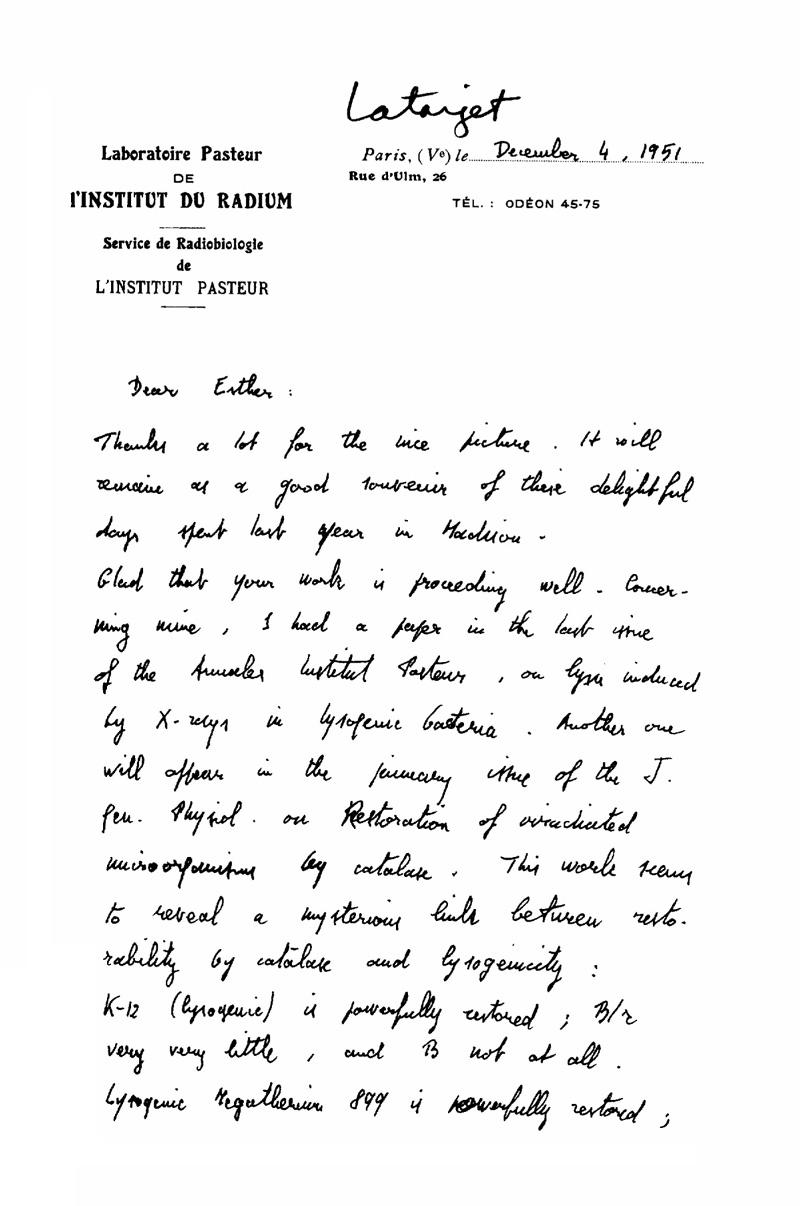 Latarjet
Laboratoire Pasteur
DE
l'INSTITUT DU RADIUM
Service de Radiobiologie
de
L'INSTITUT PASTEUR
Paris, (Ve) le December 4, 1951
Rue d'Ulm, 26
TÉL. : ODÉON 45-75
Dear Esther :
Thanks a lot for the nice picture. It will
remain as a good souvenir of these delightful
days spent last year in Madison.
Glad that your work is proceeding well. Concer-
ning mine, I had a paper in the last issue
of the Annales Institut Pasteur, on lysis induced
by X-rays in lysogenic bacteria. Another one
will appear in the january issue of the J.
gen. Physiol. on Restoration of irradiated
microorganisms by catalase. This work seems
to reveal a mysterious link between resto-
rability by catalase and lysogenicity :
K-12 (lysogenic) is powerfully restored ; B/r
very very little, and B not at all.
Lysogenic Megatherium 899 is powerfully restored ;